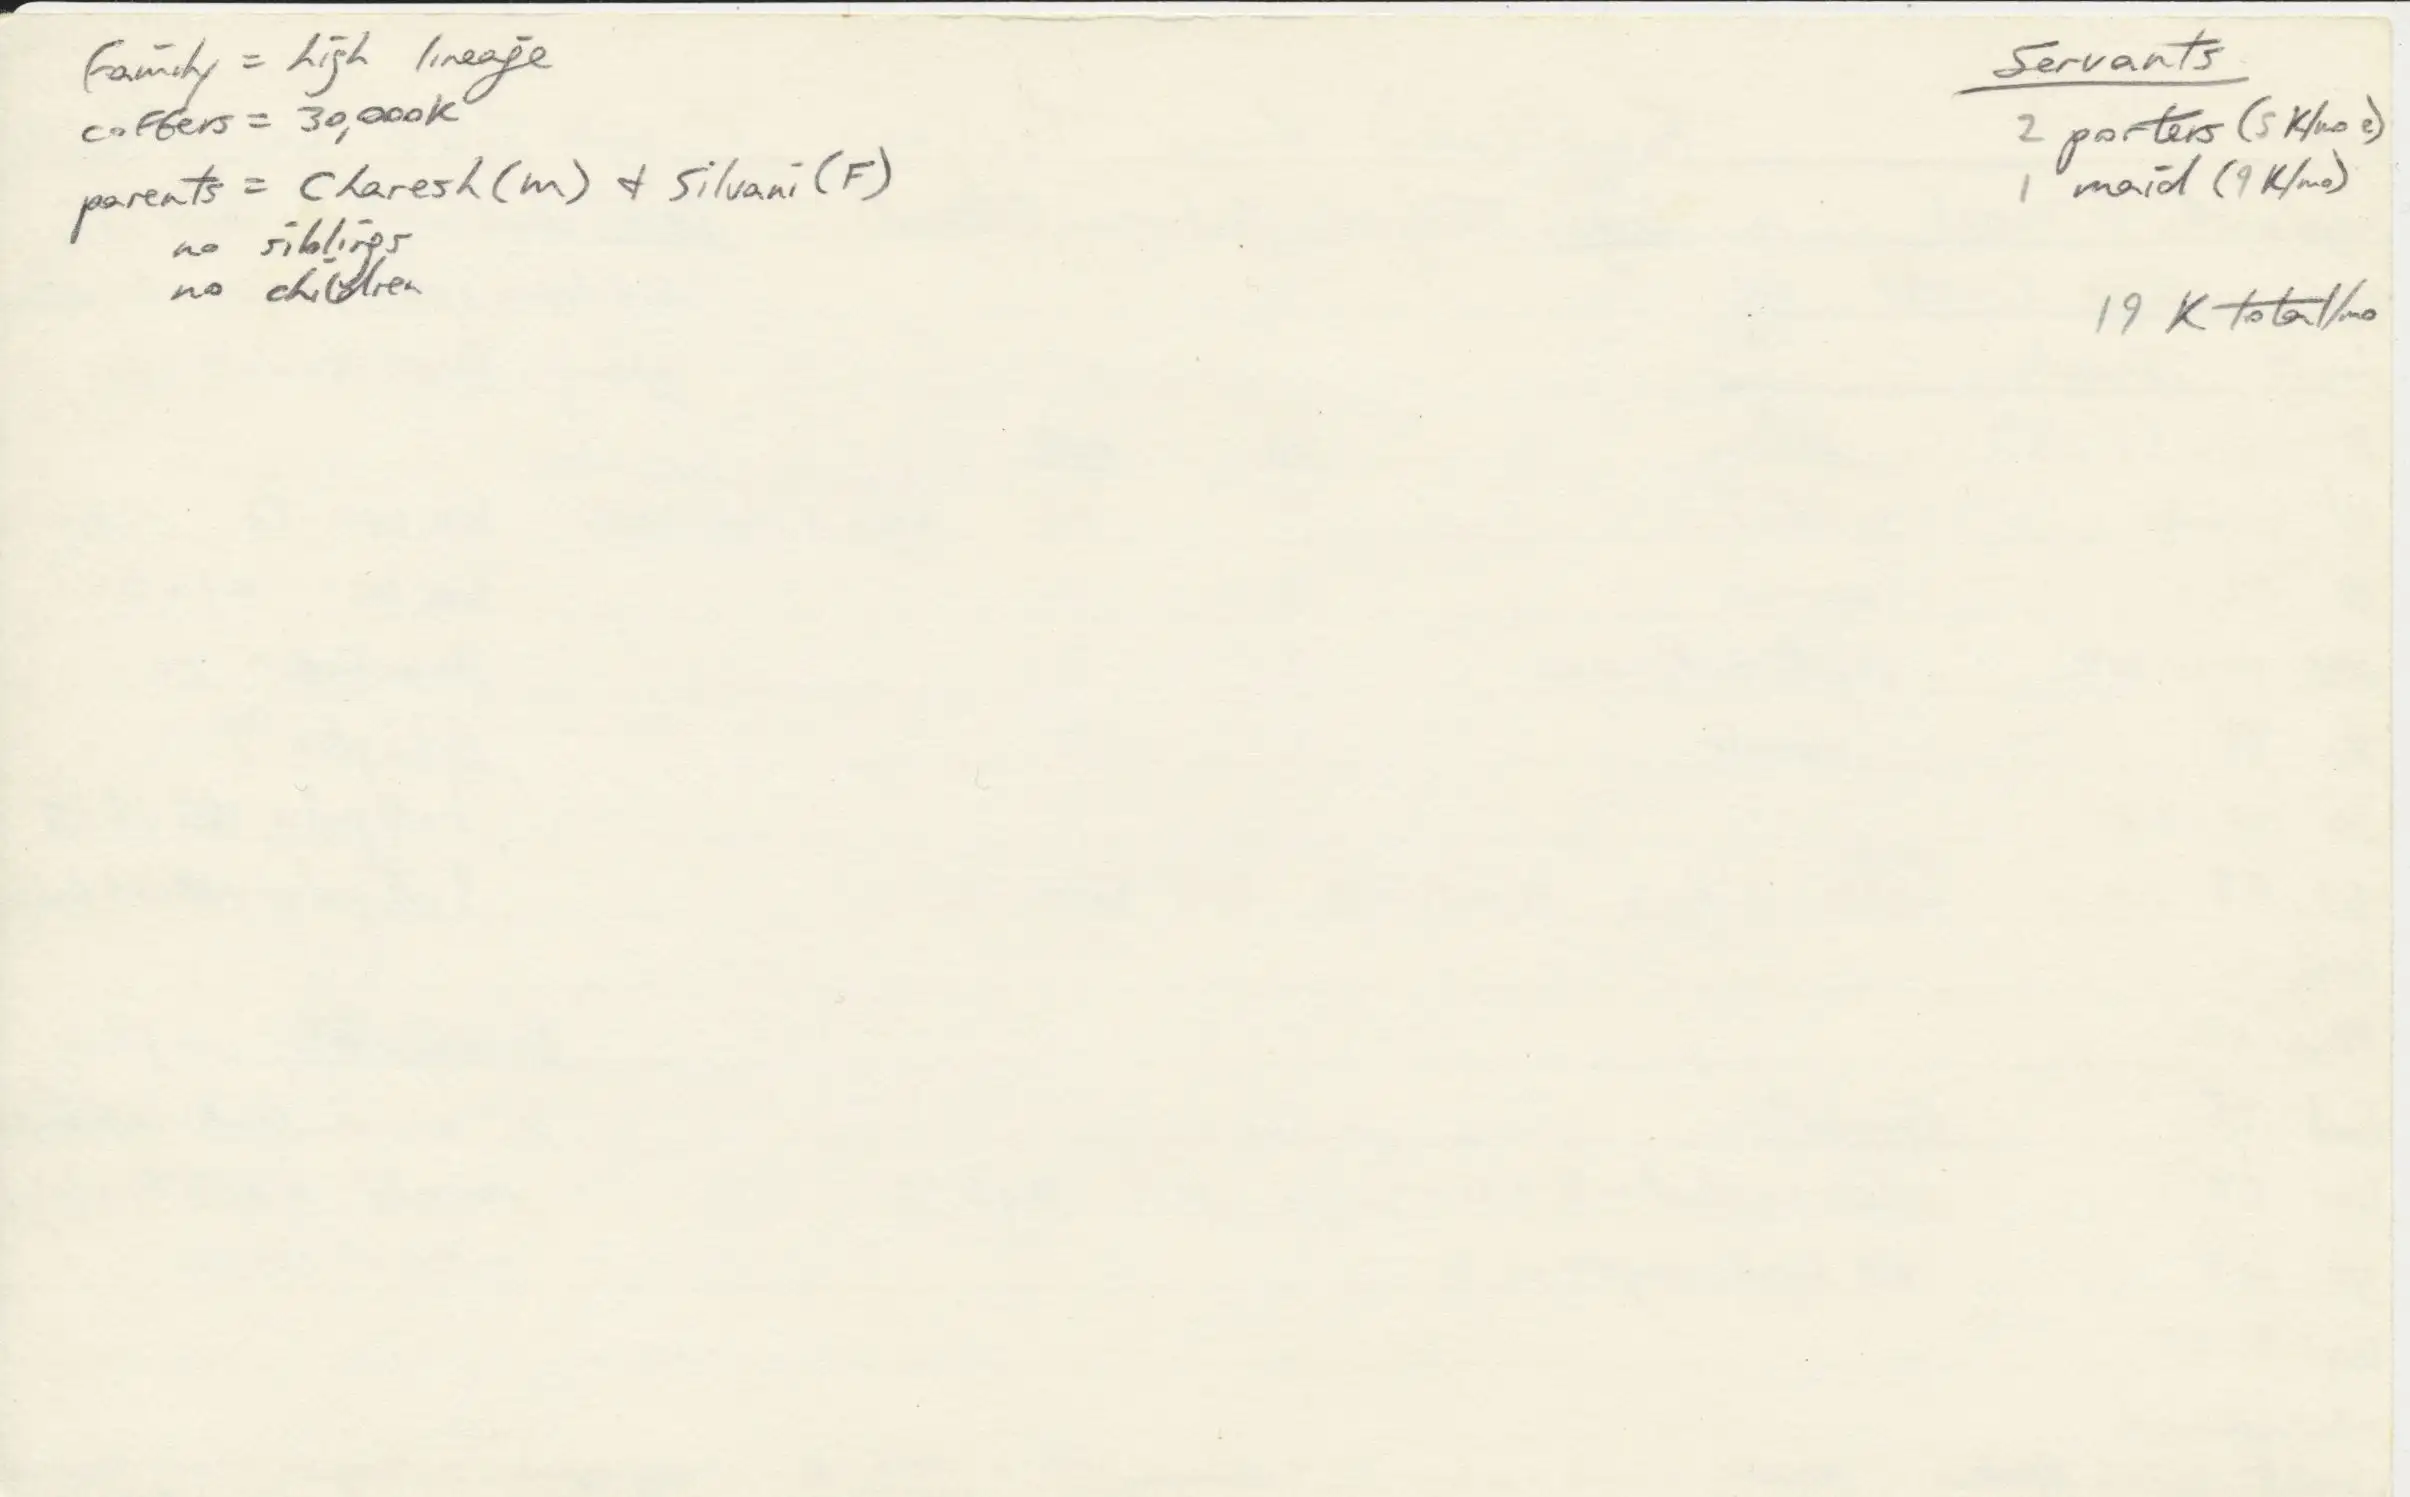 Family = high lineage
coffers = 30,000K
parents = Charesh (m) & Silvani (F)
no siblings
no children
Servants
2 porters (5 K/mo e)
1 maid (9 K/mo)
19 K total/mo